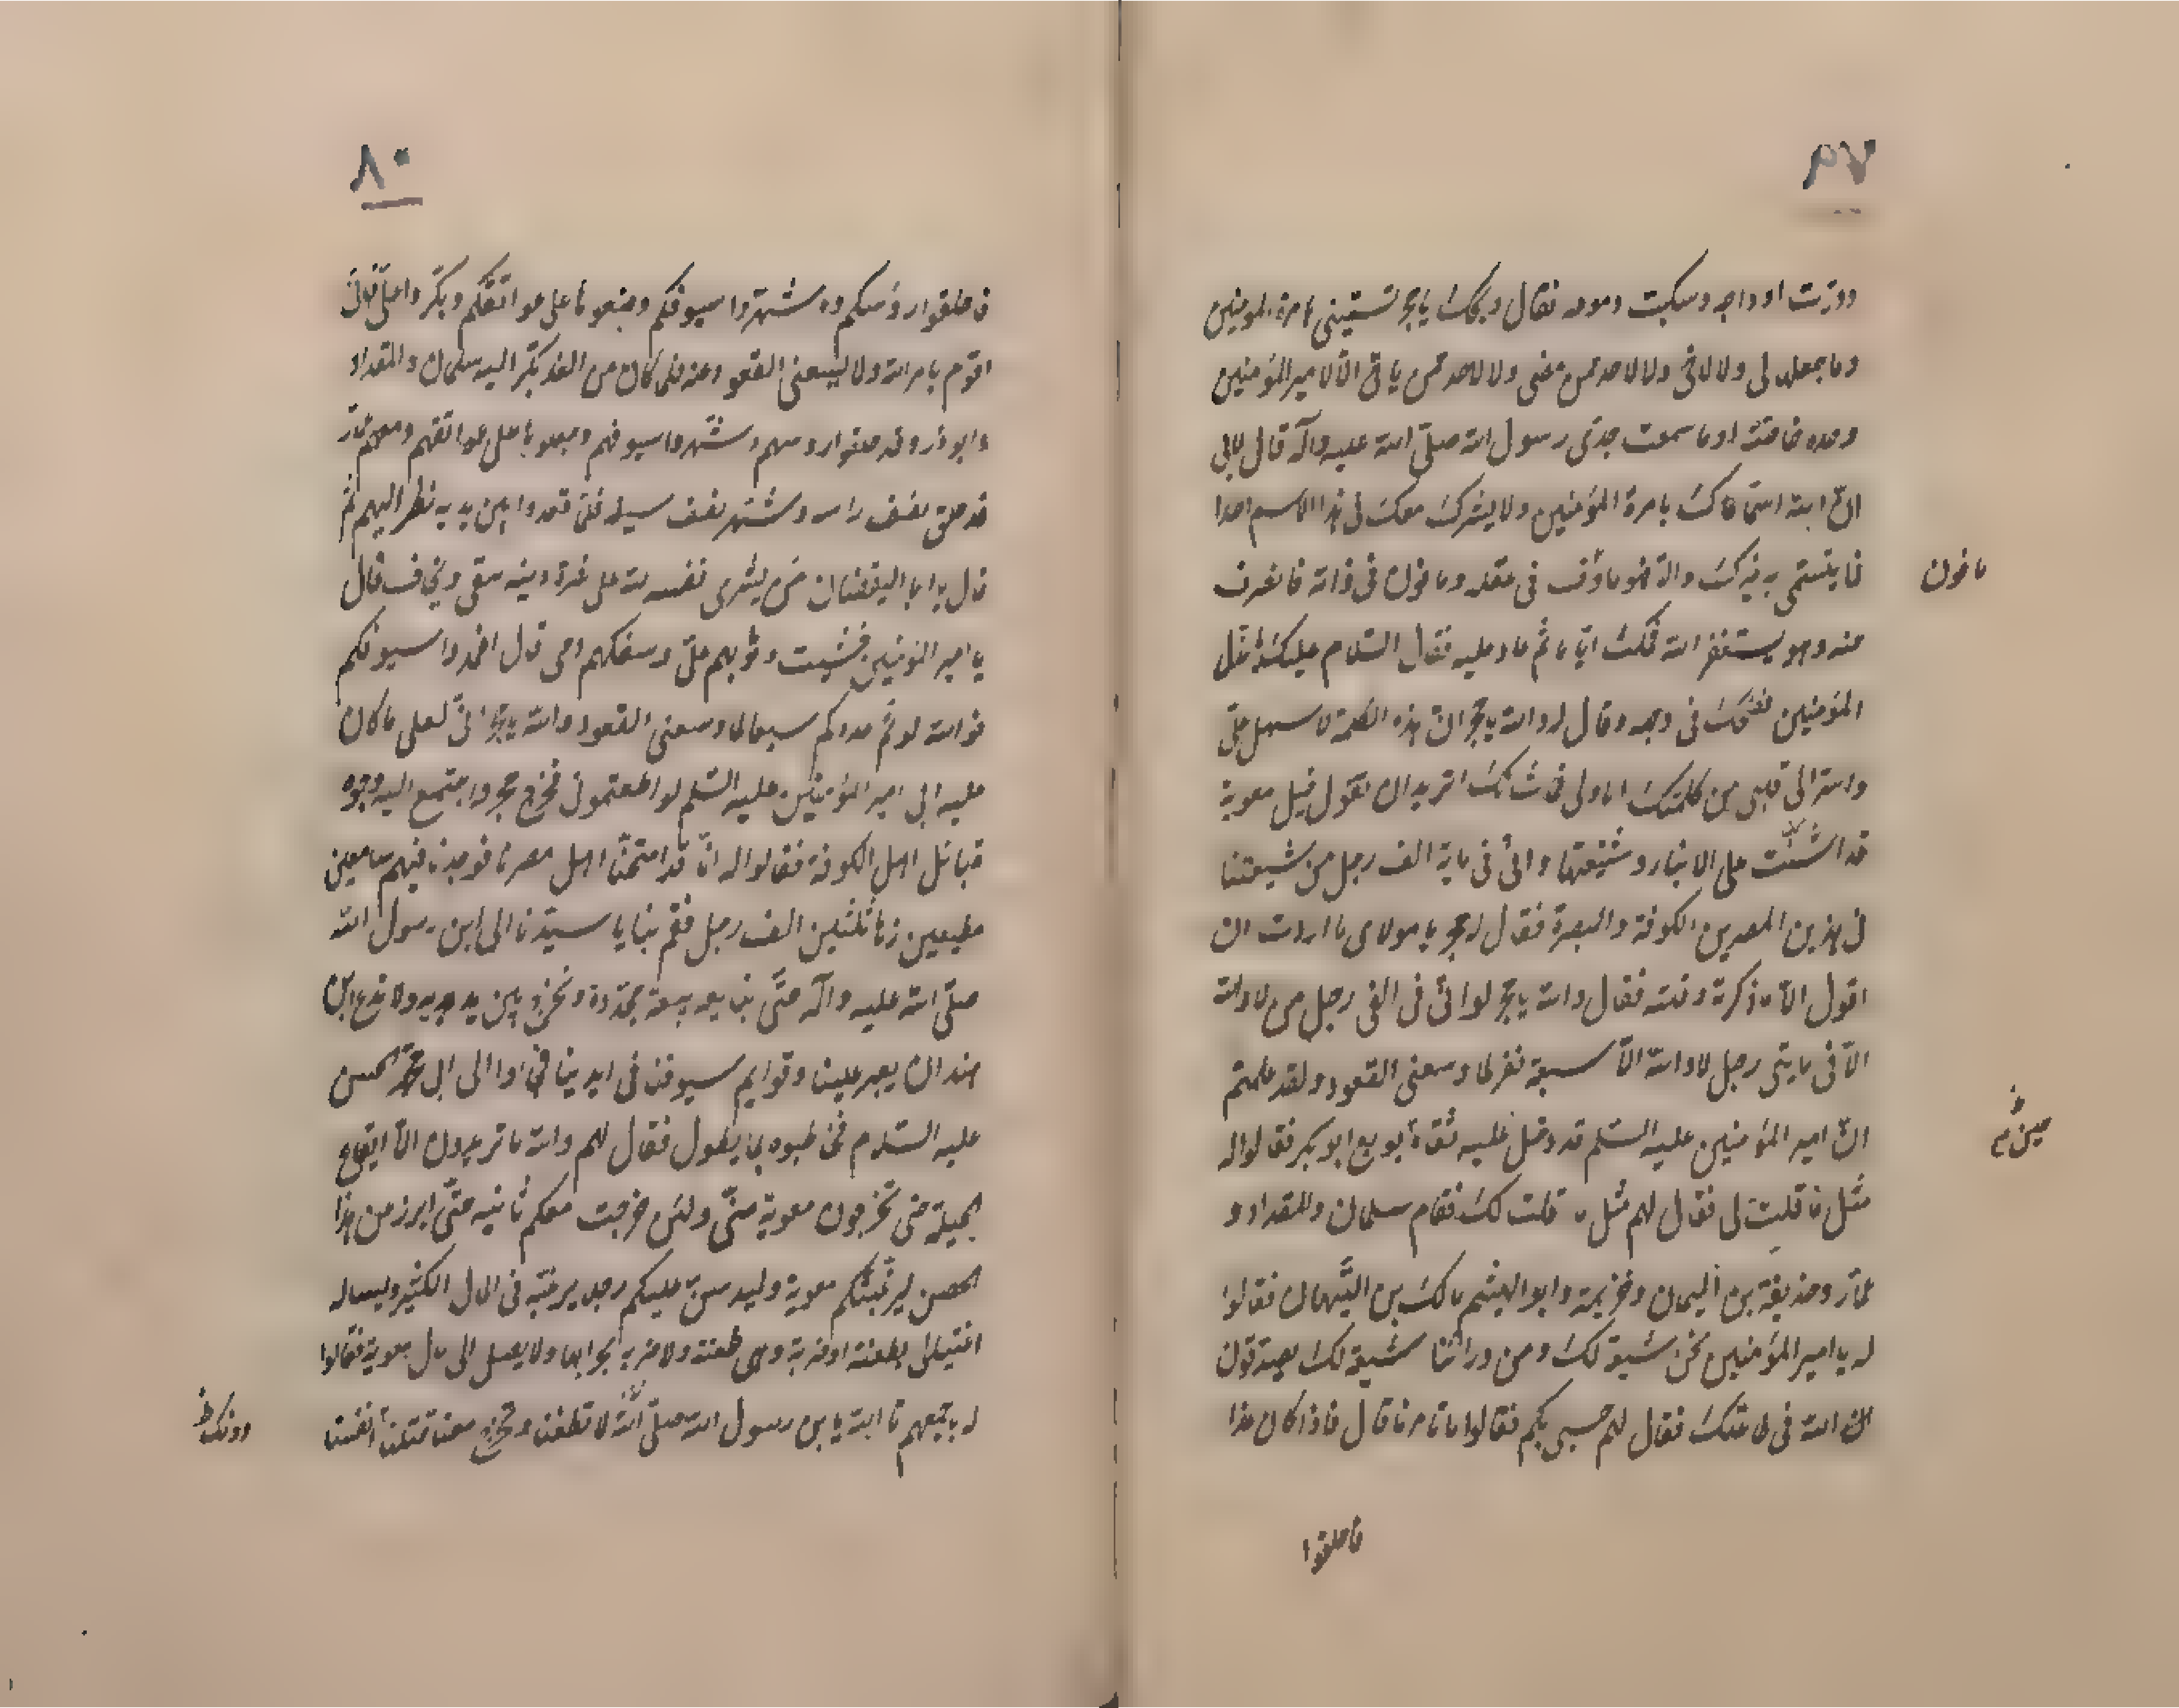 ودرّت اوداجه وسكبت دموعه فقال ويحك يا حجر تسمّيني بامرة المؤمنين
وما جعلها لى ولا لاخى ولا لاحد ممن مضى ولا لاحد ممن ياتى الّا لامير المؤمنين
وحده خاصّة اوما سمعت جدّى رسول الله صلّى الله عليه وآله قال لابى
انّ الله اسمّاك بامرة المؤمنين ولا يشرك معك فى هذا الاسم احدا
فما يتسمّى به غيرك والّا فهو مأوف فى عقله ومافون فى ذاته فانصرف
عنه وهو يستغفر الله فمكث ايّاما ثم عاد عليه فقال السّلام عليك يا مذلّ
المؤمنين فضحك فى وجهه وقال له والله يا حجر انّ هذه الكلمة لاسهل علىّ
واسرّ الى قلبى من كلمتك الاولى فما شانك اتريد ان تقول خيل معوية
قد اشرفت على الانبار وشيعتها وانّى فى ماية الف رجل من شيعتنا
فى هذين المصرين الكوفة والبصرة فقال له حجر يا مولاى ما اردت ان
اقول الّا ما ذكرته فقال والله يا حجر لو انّى فى الف رجل من لا والله
الّا فى مايتى رجل لا والله الّا سبعة نفر لما وسعنى القعود ولقد علمتم
انّ امير المؤمنين عليه السّلم قد دخل عليه ثقاة ابو بويع ابو بكر فقالوا له
مثل ما قلت لى فقال لهم مثل ما قلت لك فقام سلمان والمقداد و
عمّار وحذيفة بن اليمان وخزيمة وابو الهيثم مالك بن التّيهان فقالوا
له يا امير المؤمنين نحن شيعة لك ومن ورائنا شيعة لك يصدقون
الله فى طاعتك فقال لهم حسبى بكم فقالوا ما تامرنا قال فاذا كان غدا
فاحلقوا
مافون
حين
٨٠
فاحلقوا رؤسكم واشهروا سيوفكم وضعوها على عواتقكم وبكّروا علىّ فانّى
اقوم بامر الله ولا يسعنى القعود عنه فلمّا كان من الغد بكّر اليه سلمان والمقداد
وابوذر وقد حلقوا رؤسهم واشهروا سيوفهم وجعلوها على عواتقهم ومعهم عمّار
قد حلق نصف راسه وشهر نصف سيفه فلمّا قعدوا بين يديه نظر اليهم ثمّ
قال يا ابا اليقظان من يشرى نفسه لله على نصرة دينه يبقى ويخاف فقال
يا امير المؤمنين خشيت وثوبهم علىّ وسفكهم دمى قال اغمدوا سيوفكم
فوالله لو تمّ عددكم سبعا لما وسعنى القعود والله يا حجر انّى لعلى ما كان
عليه ابى امير المؤمنين عليه السّلم لو اطعتمونى فخرج حجر واجتمع اليه وجوه
قبائل اهل الكوفة فقالوا له انّا قد امتحنّا اهل مصرنا فوجدنا فيهم سامعين
مطيعين زهاء ثلثين الف رجل فقم بنا يا سيّدنا الى ابن رسول الله
صلّى الله عليه وآله حتّى نبايعه بيعة مجدّدة ونخرج بين يديه ولا ندع ابن
هند ان يعبر علينا وقوايم سيوفنا فى ايدينا فجاؤا الى ابى محمّد الحسن
عليه السّلام فخاطبوه بما يطول فقال لهم والله ما تريدون الّا ايقاع
الحيلة حتى تخرجون معوية منّى ولئن خرجت معكم ثانية حتّى ابرز من هذا
الحصن ليرغبنّكم معوية وليدسنّ عليكم رجلا يرغبه فى المال الكثير ويساله
اغتيالى بطعنة او ضربة وهى طعنة ولا ضربة بحرابها ولا يصل الى مال معوية فقالوا
له باجمعهم تا الله يا بن رسول الله صلّى الله لا تطعنا وتخرج معنا قتلنا انفسنا
دونك